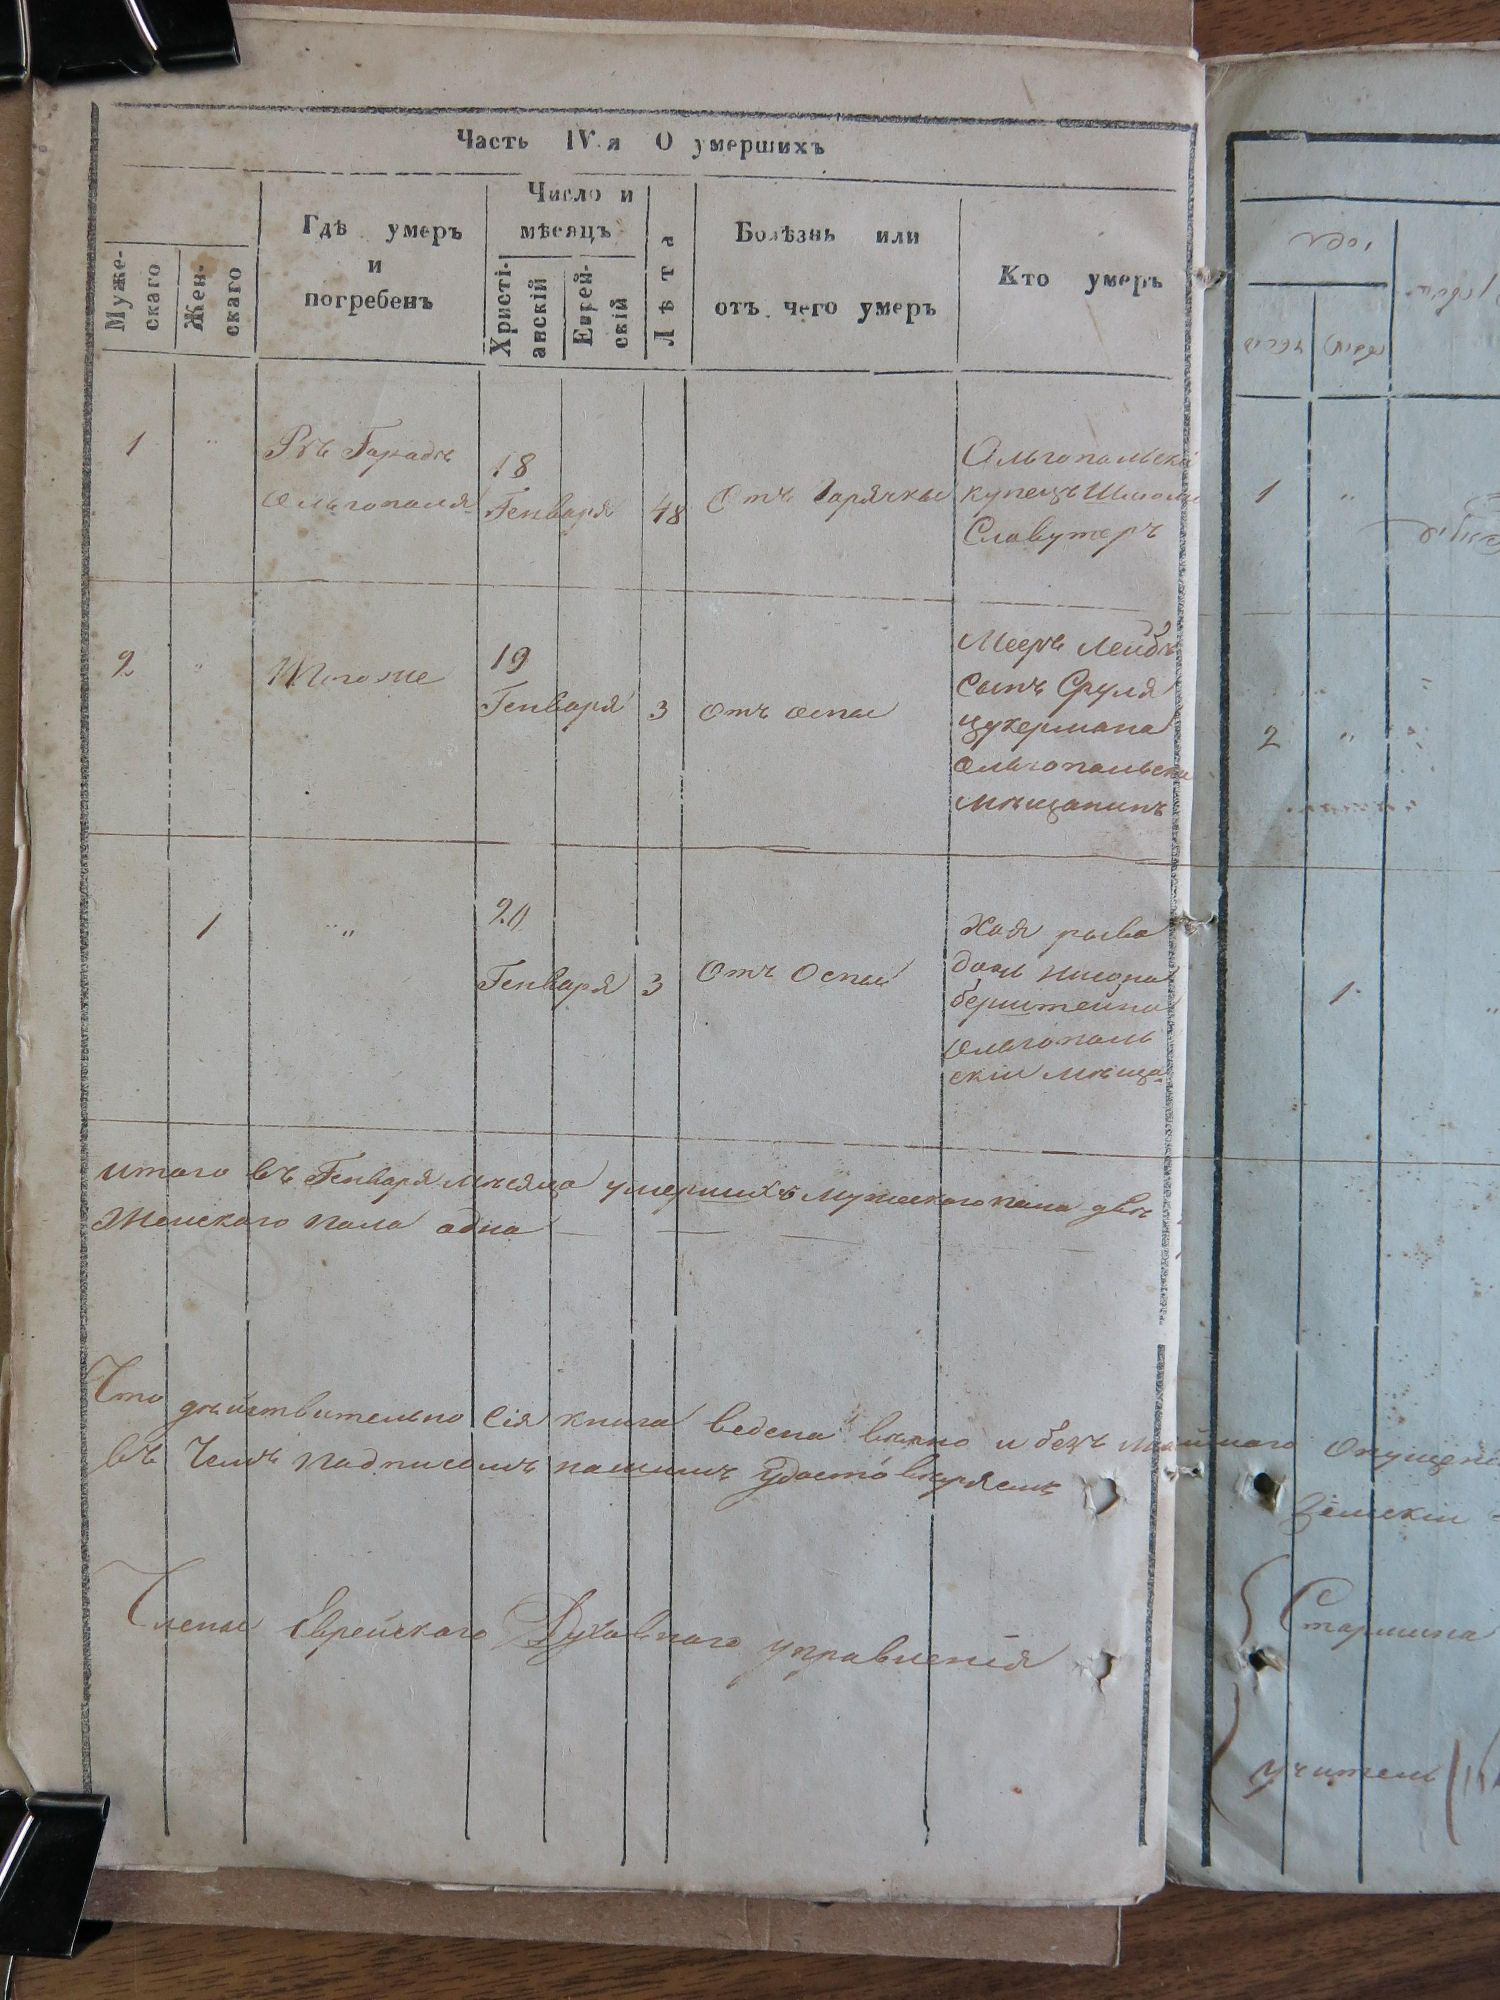 Часть IV.я О умершихъ
Муже-
скаго
Жен-
скаго
Гдѣ умеръ
и
погребенъ
Число и
мѣсяцъ
Христі-
анскій
Еврей-
скій
Лѣта
Болѣзнь или
отъ чего умеръ
Кто умеръ
1
"
Гарадѣ
ольгополя
18
Генваря
48
Отъ Гарячкы
Ольгопольскі
купецъ Шмоль
Славутеръ
2
"
Тогоже
19
Генваря
3
Отъ оспы
Мееръ Лейбъ
Сынъ Сруля
цукермана
ольгопольски
мѣщанинъ
1
"
20
Генваря
3
Отъ Оспы
Хая рыва
дочь
берштейна
ольгополь
скіи мѣща
итого въ Генваря мѣсяца умершихъ мужескаго пала двѣ
Женскаго пала одна
Что дѣйствительно Сія книга ведена вѣрно и безъ опущені
въ Чемъ падписомъ нашимъ Удостовѣряемъ
Члены Еврейскаго Духавнаго управленія
1
"
2
"
1
"
Старшина
учитель